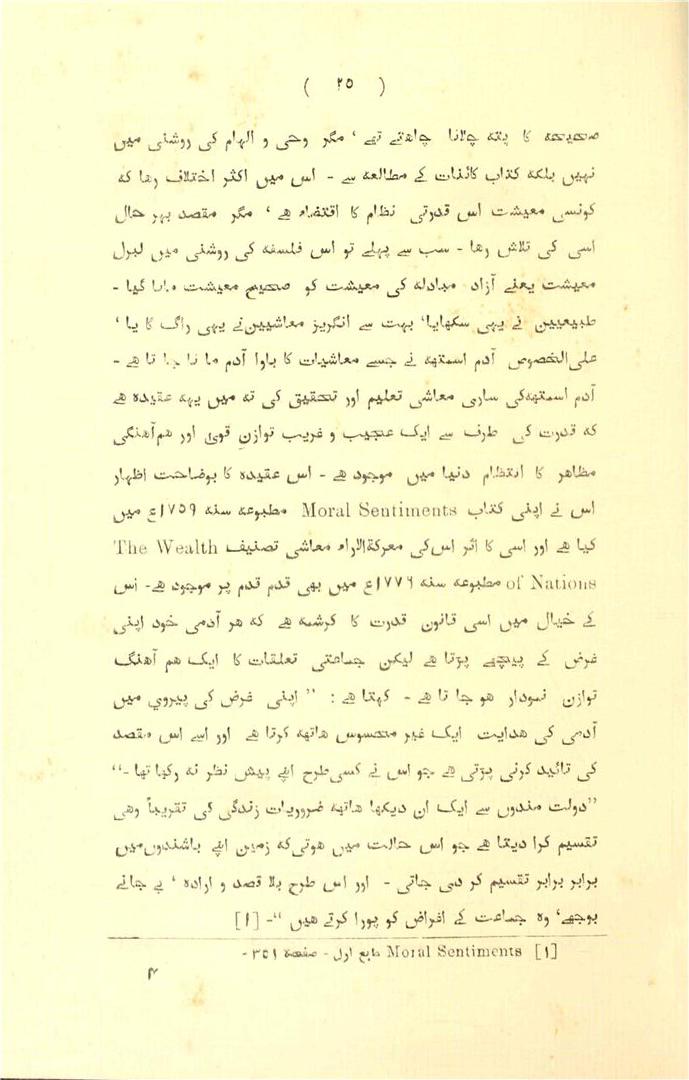 ( ۲۵ )
صحیحہ کا پتہ چلانا چاھتے تھے ' مگر وحی و الہام کی روشنی میں
نہیں بلکہ کتاب کائنات کے مطالعہ سے - اس میں اکثر اختلاف رھا کہ
کونسی معیشت اس قدرتی نظام کا اقتضاء ھے ' مگر مقصد بہر حال
اسی کی تلاش رھا - سب سے پہلے تو اس فلسفہ کی روشنی میں لبرل
معیشت یعنے آزاد مبادلہ کی معیشت کو صحیح معیشت مانا گیا -
طبیعیین نے یہی سکھایا' بہت سے انگریز معاشیین نے یہی راگ گا یا '
علی الخصوص آدم اسمتھہ نے جسے معاشیات کا باوا آدم ما نا جا تا ھے -
آدم اسمتھہ کی ساری معاشی تعلیم اور تحقیق کی تہ میں یہہ عقیدہ ھے
کہ قدرت کی طرف سے ایک عجیب و غریب توازنِ قویٰ اور ھم آھنگی
مظاھر کا انتظام دنیا میں موجود ھے - اس عقیدہ کا بوضاحت اظہار
اس نے اپنی کتاب Moral Sentiments مطبوعہ سنہ ۱۷۵۹ع میں
کیا ھے اور اسی کا اثر اس کی معرکۃالاراء معاشی تصنیف The Wealth
of Nations مطبوعہ سنہ ۱۷۷۶ع میں بھی قدم قدم پر موجود ھے - اس
کے خیال میں اسی قانون قدرت کا کرشمہ ھے کہ ھر آدمی خود اپنی
غرض کے پیچھے پڑتا ھے لیکن جماعتی تعلقات کا ایک ھم آھنگ
توازن نمودار ھو جا تا ھے - کہتا ھے : '' اپنی غرض کی پیروی میں
آدمی کی ھدایت ایک غیر محسوس ھاتھہ کرتا ھے اور اسے اس مقصد
کی تائید کرنی پڑتی ھے جو اس نے کسی طرح اپنے پیش نظر نہ رکھا تھا -''
''دولت مندوں سے ایک ان دیکھا ھاتھہ ضروریات زندگی کی تقریباً وھی
تقسیم کرا دیتا ھے جو اس حالت میں ھوتی کہ زمین اپنے باشندوں میں
برابر برابر تقسیم کر دی جاتی - اور اس طرح بلا قصد و ارادہ ' بے جانے
بوجھے' وہ جماعت کے اغراض کو پورا کرتے ھیں ''- [1]
[1] Moral Sentiments طبع اول - صفحہ ۳۵۱ -
۴